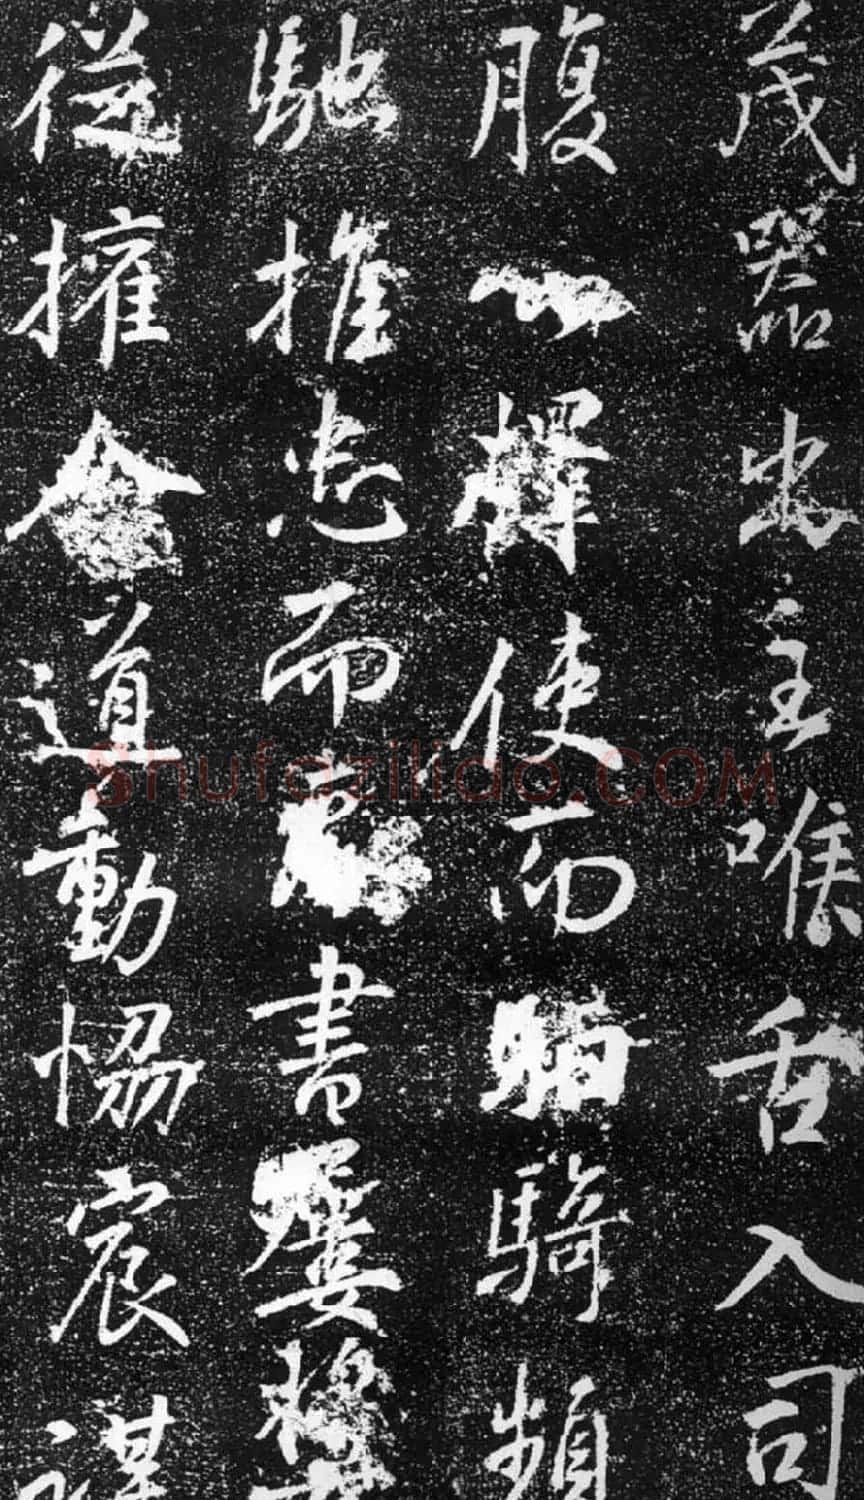 茂器出主喉舌入司
腹心擇使而騎頻
馳推忠而書屢獎
從擁道動恊宸謀
Shufaziliao.COM